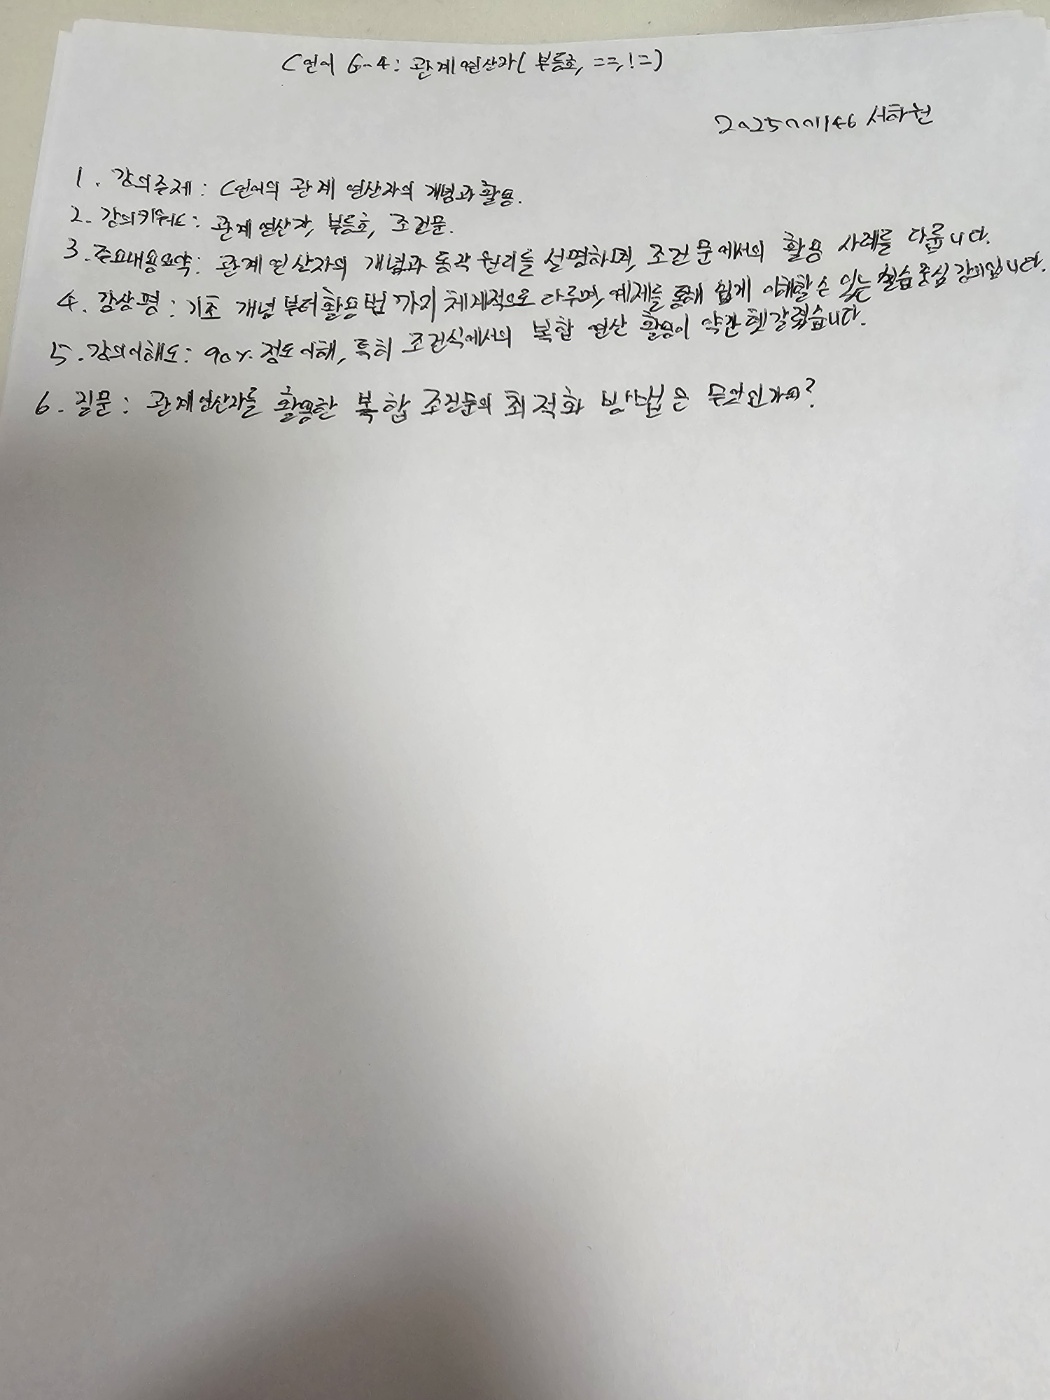 C언어 6-4: 관계연산자( 부등호, ==, !=)
2025001146 서하원
1. 강의주제: C언어의 관계 연산자의 개념과 활용.
2. 강의키워드: 관계연산자, 부등호, 조건문.
3. 주요내용요약: 관계연산자의 개념과 동작 원리를 설명하며, 조건문에서의 활용 사례를 다룹니다.
4. 감상평: 기초 개념부터 활용법까지 체계적으로 다루며, 예제를 통해 쉽게 이해할 수 있는 실습 중심 강의입니다.
5. 강의이해도: 90% 정도 이해, 특히 조건식에서의 복합 연산 활용이 약간 헷갈렸습니다.
6. 질문: 관계연산자를 활용한 복합 조건문의 최적화 방법은 무엇인가요?